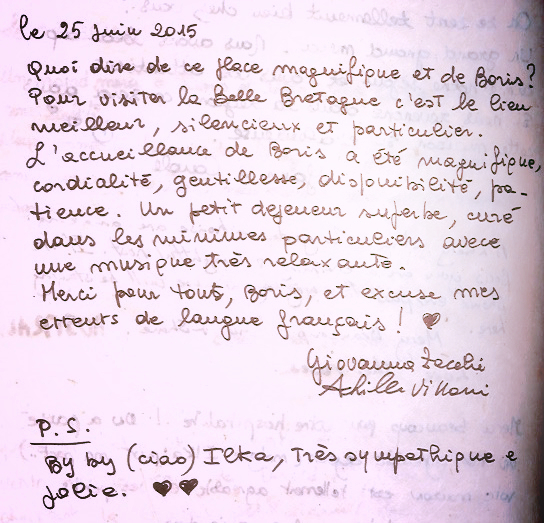 le 25 juin 2015
Quoi dire de ce place magnifique et de Boris?
Pour visiter la Belle Bretagne c'est le lieu
meilleur, silencieux et particulier.
L'accueillance de Boris a été magnifique,
cordialité, gentillesse, disponibilité, pa-
tience. Un petit dejeneur superbe, curé
dans les minimes particuliers avece
une musique très relaxante.
Merci pour tout, Boris, et excuse mes
erreurs de langue français! ♥
Giovanna Zecchi
Achille Villani
P.S.
By by (ciao) Ilka, très sympathique e
jolie. ♥♥